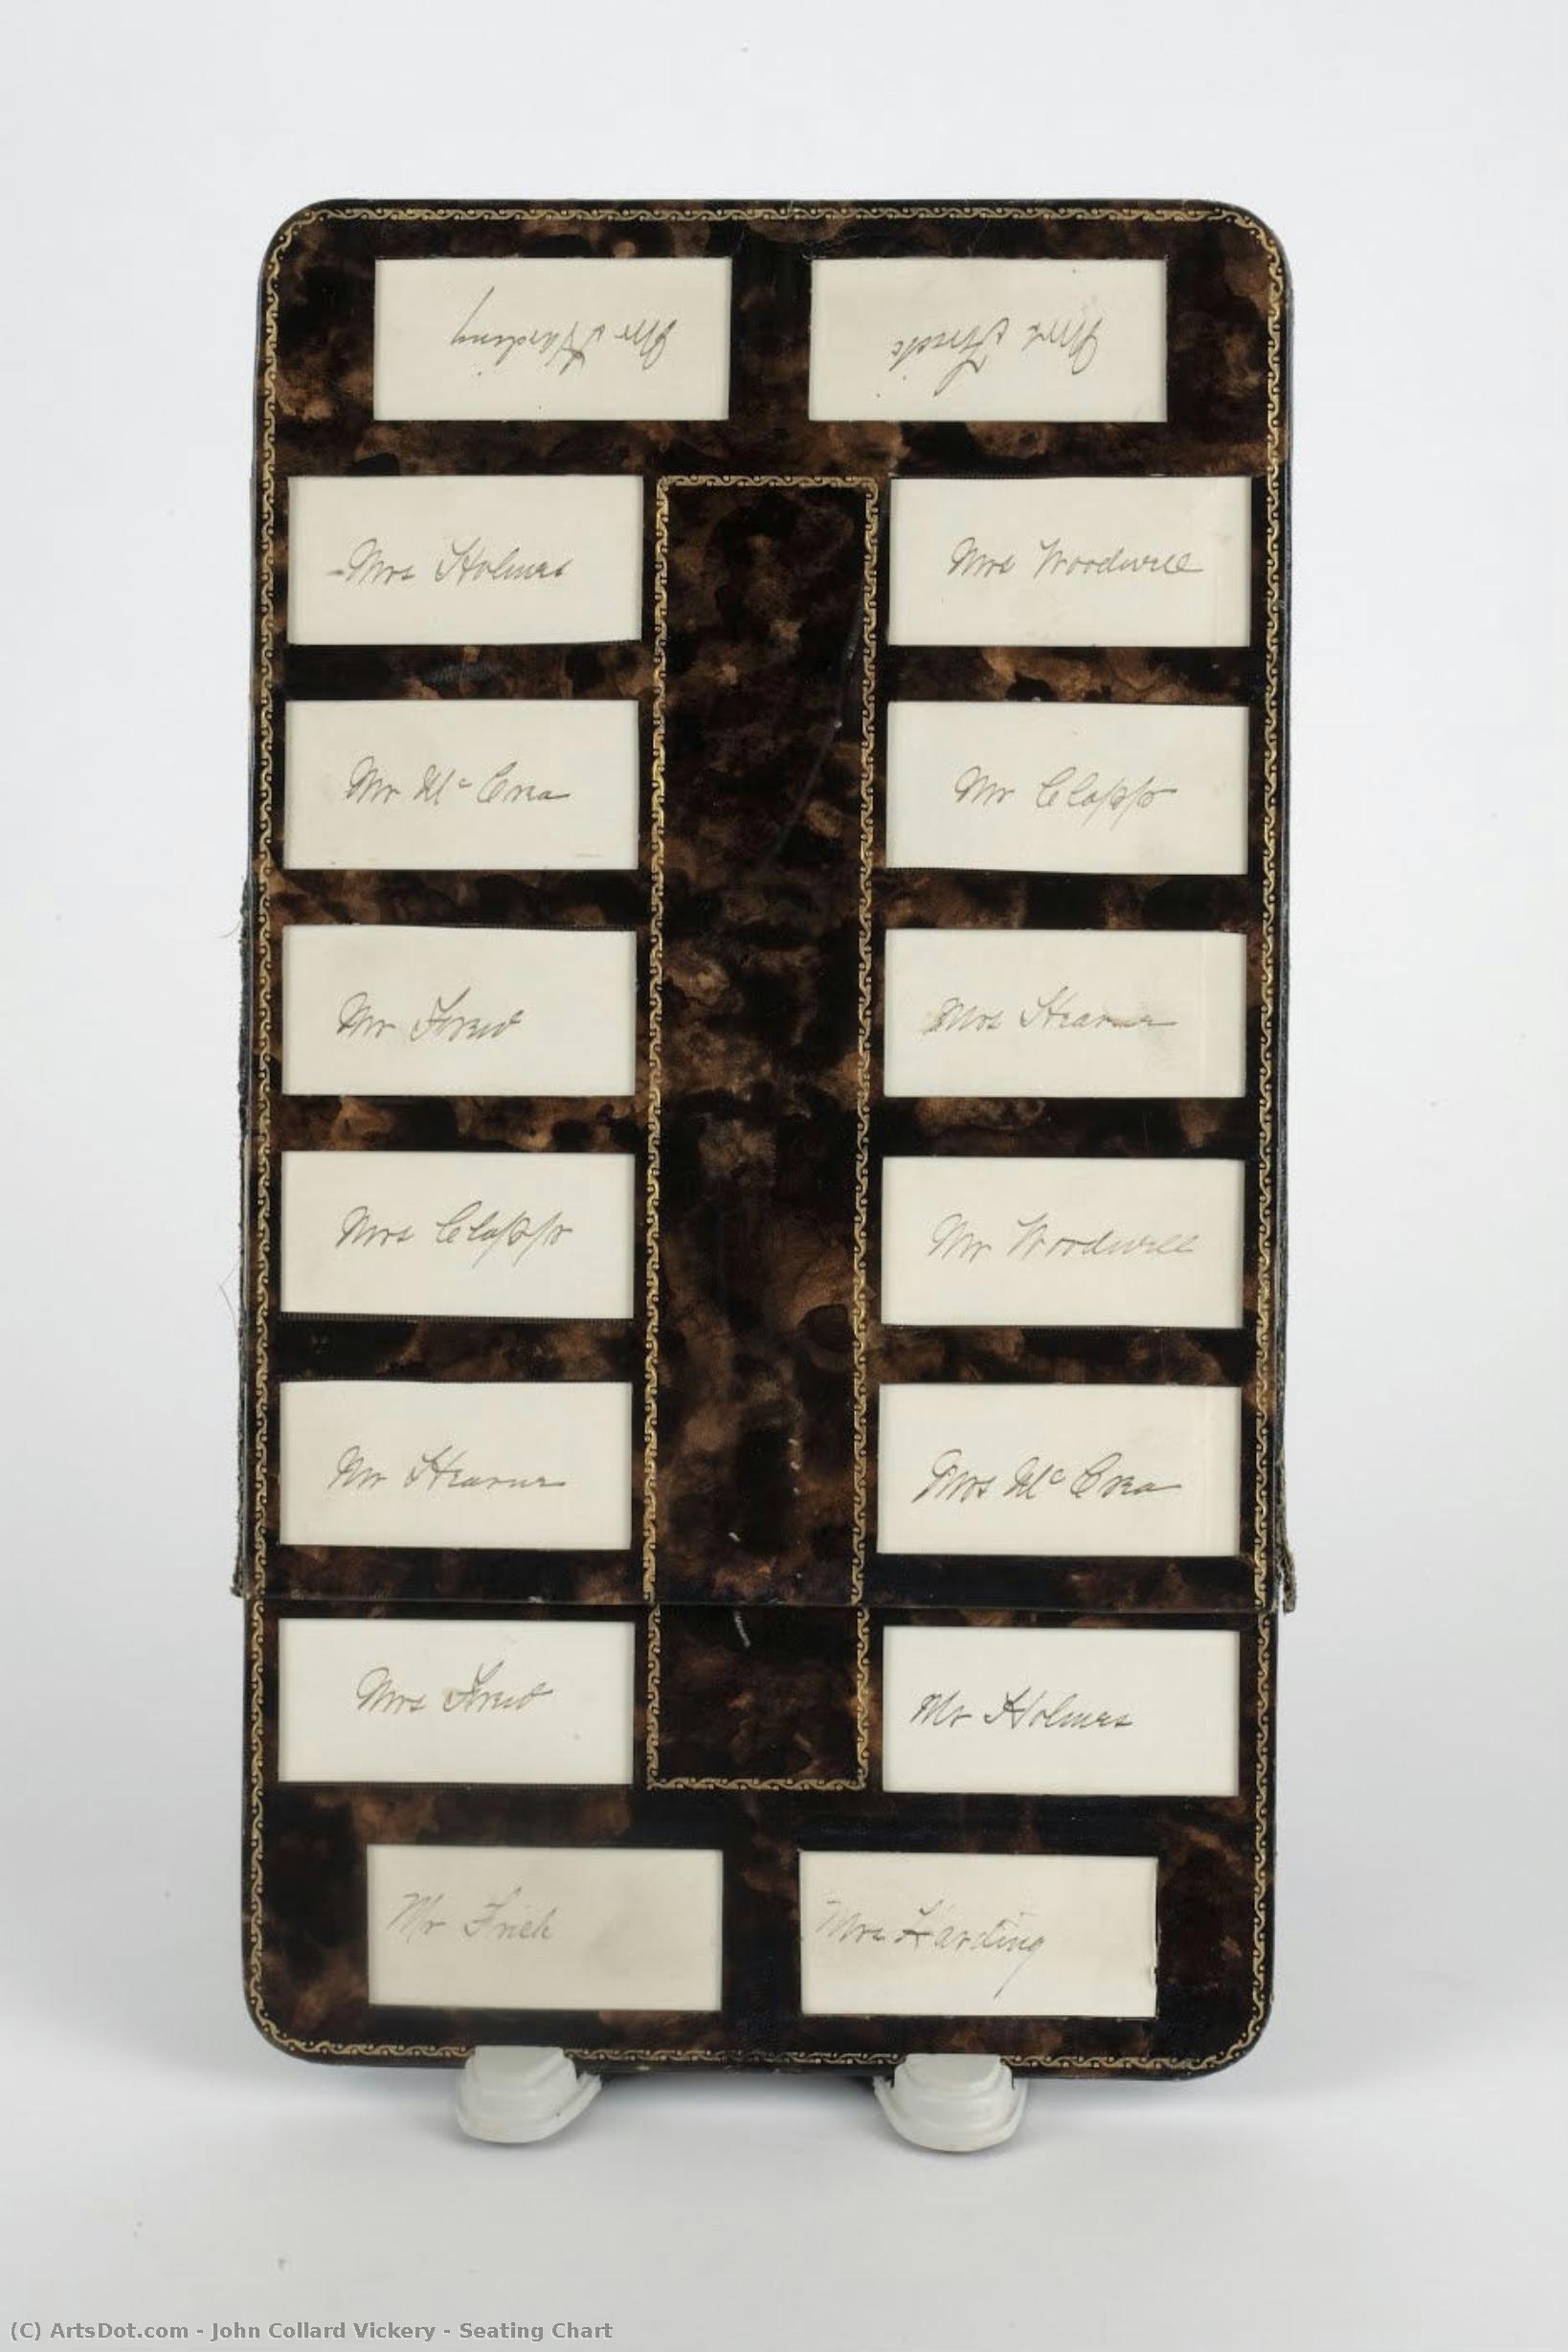 Mr Harding
Mrs Frick
Mrs Holmes
Mrs Woodwell
Mr Mc Crea
Mr Clapp
Mr Frew
Mrs Hearne
Mrs Clapp
Mr Woodwell
Mr Hearne
Mrs Mc Crea
Mrs Frew
Mr Holmes
Mr Frick
Mrs Harding
(C) ArtsDot.com - John Collard Vickery - Seating Chart